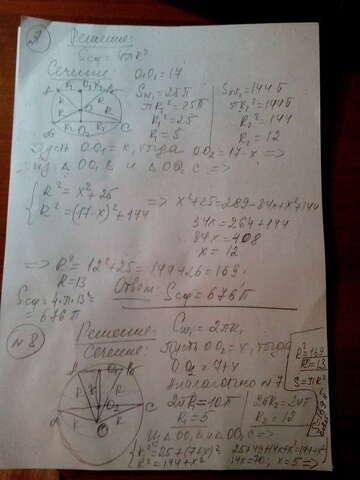 7
Решение:
Sсф = 4πR²
Сечение: O₁O₂ = 17
S = 25π
πR₁² = 25π
R₁² = 25
R₁ = 5
S = 144π
πR₂² = 144π
R₂² = 144
R₂ = 12
Пусть OO₁ = x, тогда OO₂ = 17-x =>
из △ OO₁B и △ OO₂C =>
R² = x² + 25
R² = (17-x)² + 144
=> x² + 25 = 289 - 34x + x² + 144
34x = 264 + 144
34x = 408
x = 12
=> R² = 12² + 25 = 144 + 25 = 169
R = 13
Sсф = 4·π·13² =
= 676π
Ответ: Sсф = 676π
№8
Решение: C = 2πR
Сечение: Пусть OO₂ = x, тогда
OO₁ = 7+x
Аналогично №7
2πR₁ = 10π
R₁ = 5
2πR₂ = 24π
R₂ = 12
Из △ OO₁B и △ OO₂C =>
R² = 25 + (7+x)²
R² = 144 + x²
25 + 49 + 14x + x² = 144 + x²
14x = 70, x = 5 =>
R² = 169
R = 13
S = πR²